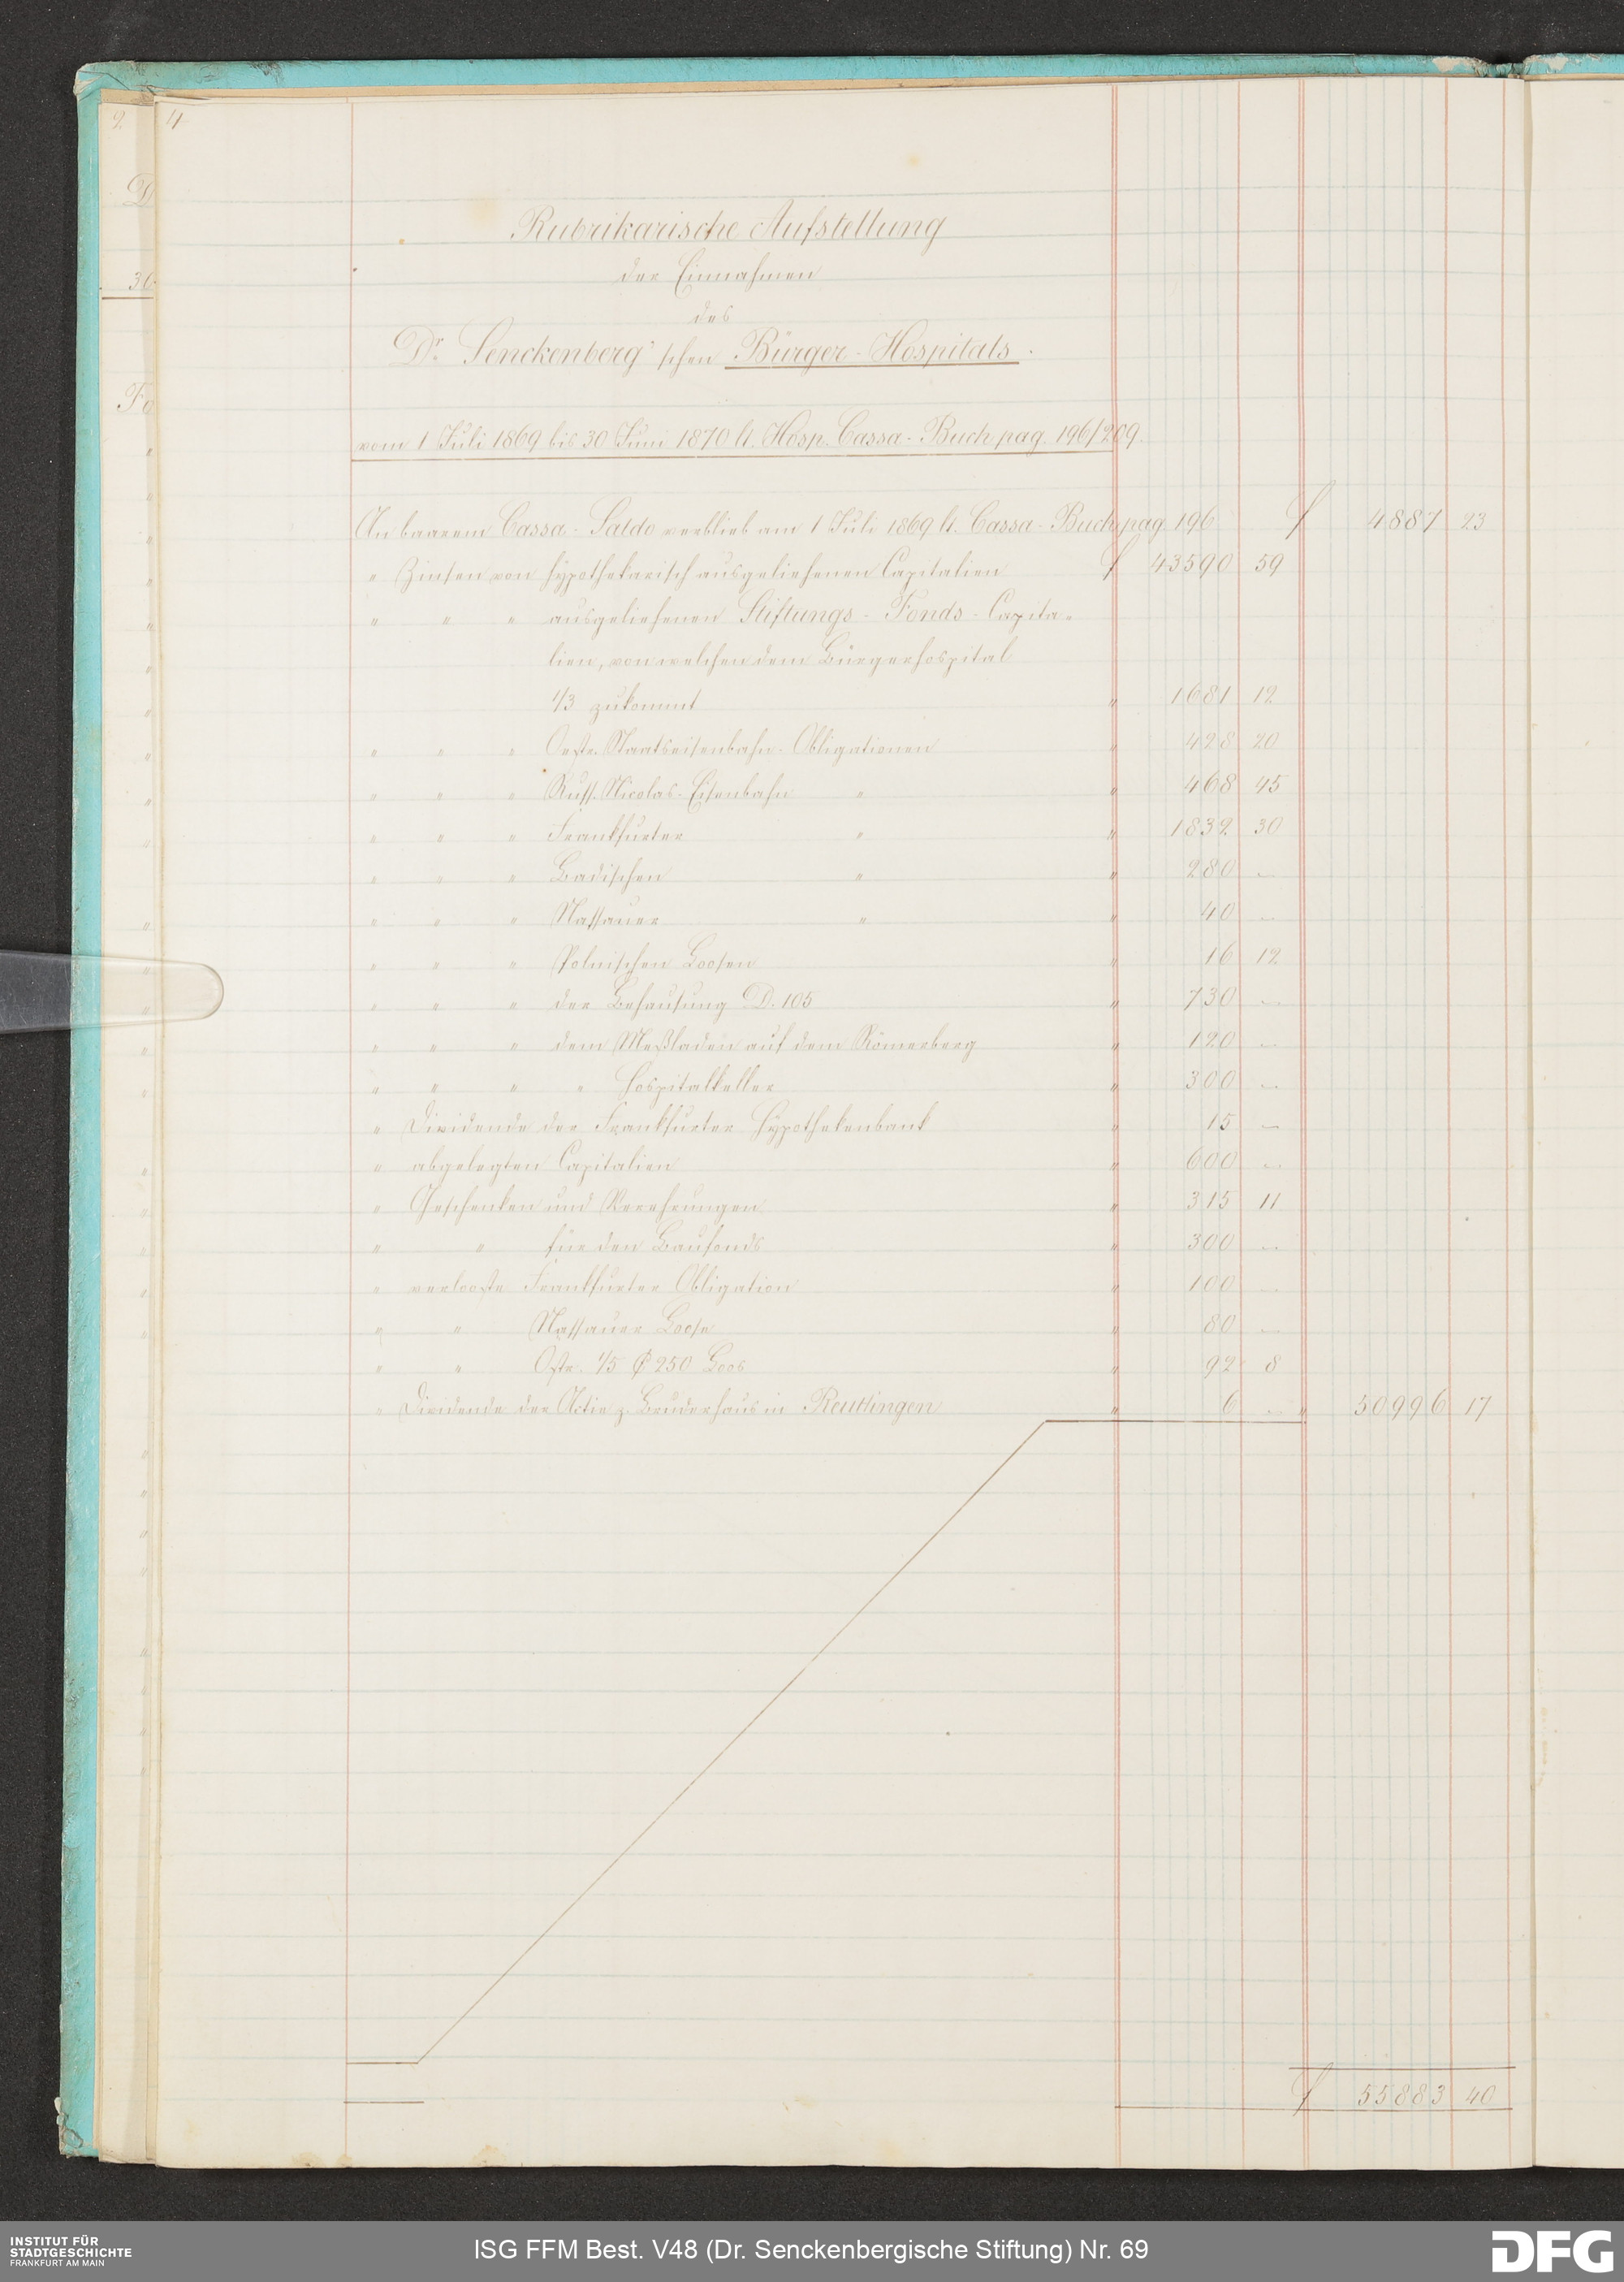 2 4
D
Rubrikarische Aufstellung
der Einnahmen
30
des
Dr. Senckenberg'schen Bürger-Hospitals.
Fo
vom 1 Juli 1869 bis 30 Juni 1870 lt. Hosp. Cassa-Buch pag. 196/209.
An baarem Cassa-Saldo verblieb am 1 Juli 1869 lt. Cassa-Buch pag. 196 f 4887 23
" Zinsen von hypothekarisch ausgeliehenen Capitalien f 43590 59
" " " ausgeliehenen Stiftungs-Fonds-Capita-
lien, von welchen dem Bürgerhospital
1/3 zukommt " 1681 12
" " " Oestr. Staatseisenbahn-Obligationen " 428 20
" " " Russ. Nicolas-Eisenbahn " " 468 45
" " " Frankfurter " " 1832 30
" " " Badischen " " 280 –
" " " Nassauer " " 40 –
" " " Polnischen Loosen " 16 12
" " " der Behausung D. 105 " 730 –
" " " dem Meßladen auf dem Römerberg " 120 –
" " " " Hospitalkeller " 300 –
" Dividende der Frankfurter Hypothekenbank " 15 –
" abgelegten Capitalien " 600 –
" Geschenken und Verehrungen " 315 11
" " für den Baufonds " 300 –
" verlooste Frankfurter Obligation " 100 –
" " Nassauer Loose " 80 –
" " Östr. 1/5 f 250 Loos " 92 8
" Dividende der Actie z. Bruderhaus in Reutlingen " 6 – " 50996 17
f 55883 40
INSTITUT FÜR
STADTGESCHICHTE
FRANKFURT AM MAIN
ISG FFM Best. V48 (Dr. Senckenbergische Stiftung) Nr. 69
DFG